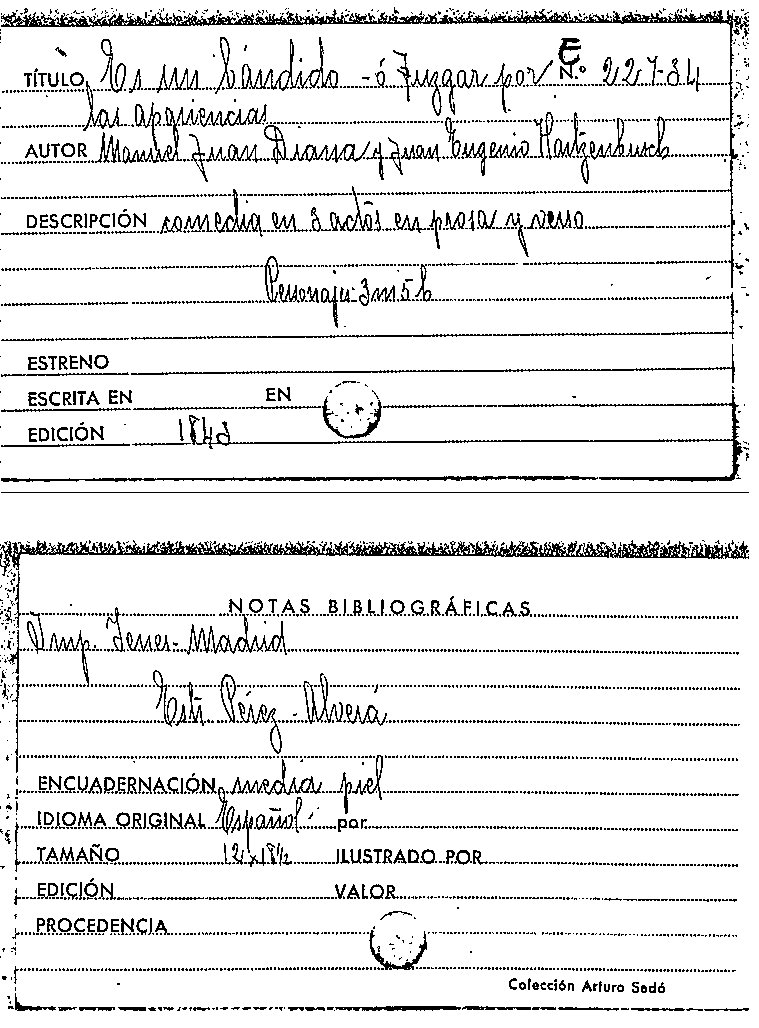 E
TÍTULO Es un bándido - ó Juzgar por N.º 227-34
las apariencias
AUTOR Manuel Juan Diana y Juan Eugenio Hartzenbusch
DESCRIPCIÓN comedia en 3 actos en prosa y verso
Personajes-3m 5h
ESTRENO
ESCRITA EN EN
EDICIÓN 1843
NOTAS BIBLIOGRÁFICAS
Imp. Yenes-Madrid
Estr Pérez-Alverá
ENCUADERNACIÓN media piel
IDIOMA ORIGINAL Español por
TAMAÑO 12x18½ ILUSTRADO POR
EDICIÓN VALOR
PROCEDENCIA
Colección Arturo Sedó